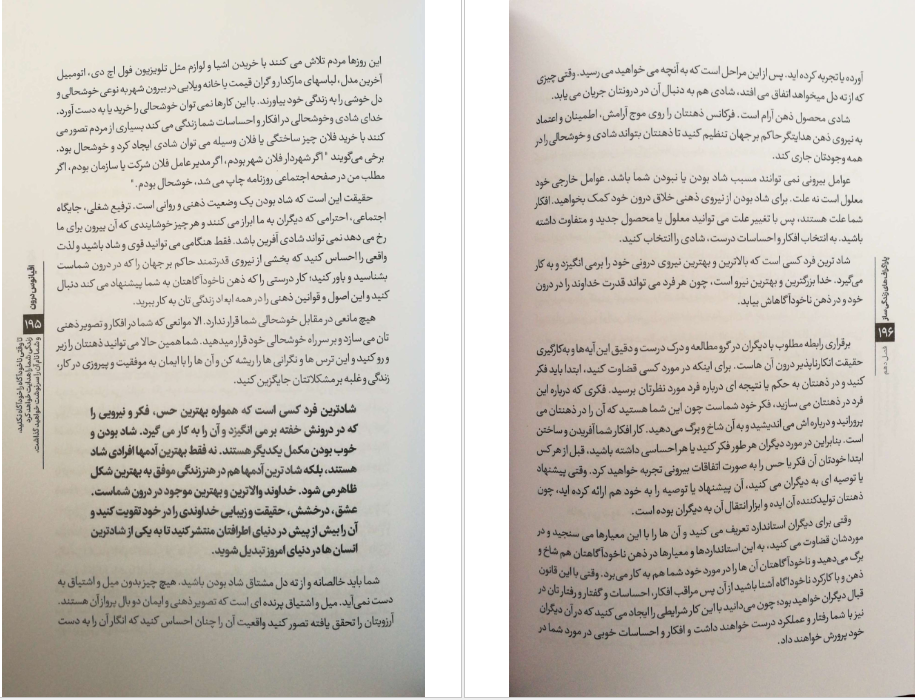 این روزها مردم تلاش می کنند با خریدن اشیا و لوازم مثل تلویزیون فول اچ دی، اتومبیل
آخرین مدل، لباسهای مارکدار و گران قیمت یا خانه ویلایی در بیرون شهر به نوعی خوشحالی و
دل خوشی را به زندگی خود بیاورند. با این کارها نمی توان خوشحالی را خرید یا به دست آورد.
خدای شادی وخوشحالی در افکار و احساسات شما زندگی می کند بسیاری از مردم تصور می
کنند با خرید فلان چیز ساختگی یا فلان وسیله می توان شادی ایجاد کرد و خوشحال بود.
برخی می‌گویند "اگر شهردار فلان شهر بودم، اگر مدیر عامل فلان شرکت یا سازمان بودم، اگر
مطلب من در صفحه اجتماعی روزنامه چاپ می شد، خوشحال بودم."
حقیقت این است که شاد بودن یک وضعیت ذهنی و روانی است. ترفیع شغلی، جایگاه
اجتماعی، احترامی که دیگران به ما ابراز می کنند و هر چیز خوشایندی که آن بیرون برای ما
رخ می دهد نمی تواند شادی آفرین باشد. فقط هنگامی می توانید قوی و شاد باشید و لذت
واقعی را احساس کنید که بخشی از نیروی قدرتمند حاکم بر جهان را که در درون شماست
بشناسید و باور کنید؛ کار درستی را که ذهن ناخودآگاهتان به شما پیشنهاد می کند دنبال
کنید و این اصول و قوانین ذهنی را در همه ابعاد زندگی تان به کار ببرید.
هیچ مانعی در مقابل خوشحالی شما قرار ندارد. الا موانعی که شما در افکار و تصویر ذهنی
تان می سازد و بر سر راه خوشحالی خود قرار میدهید. شما همین حالا می توانید ذهنتان را زیر
و رو کنید و این ترس ها و نگرانی ها را ریشه کن و آن ها را با ایمان به موفقیت و پیروزی در کار،
زندگی و غلبه بر مشکلاتتان جایگزین کنید.
شادترین فرد کسی است که همواره بهترین حس، فکر و نیرویی را
که در درونش خفته بر می انگیزد و آن را به کار می گیرد. شاد بودن و
خوب بودن مکمل یکدیگر هستند. نه فقط بهترین آدمها افرادی شاد
هستند، بلکه شاد ترین آدمها هم در هنر زندگی موفق به بهترین شکل
ظاهر می شود. خداوند والاترین و بهترین موجود در درون شماست.
عشق، درخشش، حقیقت و زیبایی خداوندی را در خود تقویت کنید و
آن را بیش از پیش در دنیای اطرافتان منتشر کنید تا به یکی از شادترین
انسان ها در دنیای امروز تبدیل شوید.
شما باید خالصانه و از ته دل مشتاق شاد بودن باشید، هیچ چیز بدون میل و اشتیاق به
دست نمی‌آید. میل و اشتیاق پرنده ای است که تصویر ذهنی و ایمان دو بال پرواز آن هستند.
آرزویتان را تحقق یافته تصور کنید واقعیت آن را چنان احساس کنید که انگار آن را به دست
اقیانوس درون
۱۹۵
تا وقتی ناخودآگاه را خودآگاه نکنید،
زندگی شما را هدایت خواهد کرد
و شما نام آن را سرنوشت خواهید گذاشت.
آورده یا تجربه کرده اید. پس از این مراحل است که به آنچه می خواهید می رسید. وقتی چیزی
که از ته دل میخواهد اتفاق می افتد، شادی هم به دنبال آن در درونتان جریان می یابد.
شادی محصول ذهن آرام است. فرکانس ذهنتان را روی موج آرامش، اطمینان و اعتماد
به نیروی ذهن هدایتگر حاکم بر جهان تنظیم کنید تا ذهنتان بتواند شادی و خوشحالی را در
همه وجودتان جاری کند.
عوامل بیرونی نمی توانند مسبب شاد بودن یا نبودن شما باشد. عوامل خارجی خود
معلول است نه علت. برای شاد بودن از نیروی ذهنی خلاق درون خود کمک بخواهید. افکار
شما علت هستند، پس با تغییر علت می توانید معلول یا محصول جدید و متفاوت داشته
باشید. به انتخاب افکار و احساسات درست، شادی را انتخاب کنید.
شاد ترین فرد کسی است که بالاترین و بهترین نیروی درونی خود را برمی انگیزد و به کار
می‌گیرد. خدا بزرگترین و بهترین نیرو است، چون هر فرد می تواند قدرت خداوند را در درون
خود و در ذهن ناخودآگاهاش بیابد.
برقراری رابطه مطلوب با دیگران در گرو مطالعه و درک درست و دقیق این آیه‌ها و به‌کارگیری
حقیقت انکارناپذیر درون آن هاست. برای اینکه در مورد کسی قضاوت کنید، ابتدا باید فکر
کنید و در ذهنتان به حکم یا نتیجه ای درباره فرد مورد نظرتان برسید. فکری که درباره این
فرد در ذهنتان می سازید، فکر خود شماست چون این شما هستید که آن را در ذهنتان می
پرورانید و درباره اش می اندیشید و به آن شاخ و برگ می‌دهید. کار افکار شما آفریدن و ساختن
است. بنابراین در مورد دیگران هر طور فکر کنید یا هر احساسی داشته باشید، قبل از هر کس
ابتدا خودتان آن فکر یا حس را به صورت اتفاقات بیرونی تجربه خواهید کرد. وقتی پیشنهاد
یا توصیه ای به دیگران می کنید، آن پیشنهاد یا توصیه را به خود هم ارائه کرده اید، چون
ذهنتان تولیدکننده آن ایده و ابزار انتقال آن به دیگران بوده است.
وقتی برای دیگران استاندارد تعریف می کنید و آن ها را با این معیارها می سنجید و در
موردشان قضاوت می کنید، به این استانداردها و معیارها در ذهن ناخودآگاهتان هم شاخ و
برگ می‌دهید و ناخودآگاهتان آن ها را در مورد خود شما هم به کار می‌برد. وقتی با این قانون
ذهن و با کارکرد ناخودآگاه آشنا باشید از آن پس مراقب افکار، احساسات و گفتار و رفتار تان در
قبال دیگران خواهید بود؛ چون می‌دانید با این کار شرایطی را ایجاد می کنید که در آن دیگران
نیز با شما رفتار و عملکرد درست خواهند داشت و افکار و احساسات خوبی در مورد شما در
خود پرورش خواهند داد.
پاراگراف های زندگی ساز
۱۹۶
فصل دهم